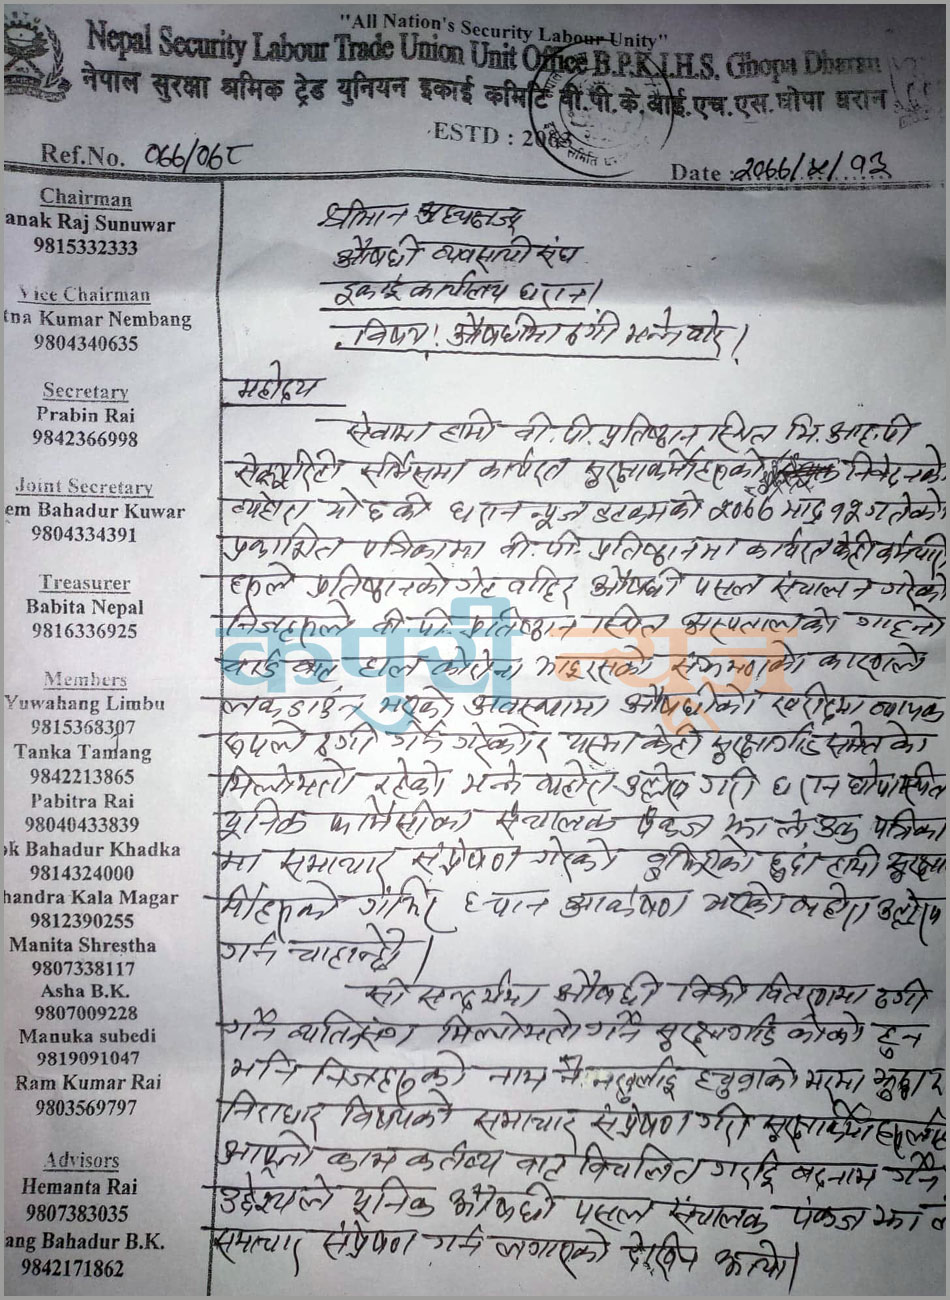 "All Nation's Security Labour Unity"
Nepal Security Labour Trade Union Unit Office B.P.K.I.H.S. Ghopa Dharan
नेपाल सुरक्षा श्रमिक ट्रेड युनियन इकाई कमिटि बी.पी.के.आई.एच.एस.घोपा धरान
ESTD : 2063
Ref.No. ०७७/०७८
Date :२०७७/५/१३
Chairman
anak Raj Sunuwar
9815332333
Vice Chairman
tna Kumar Nembang
9804340635
Secretary
Prabin Rai
9842366998
Joint Secretary
em Bahadur Kuwar
9804334391
Treasurer
Babita Nepal
9816336925
Members
Yuwahang Limbu
9815368307
Tanka Tamang
9842213865
Pabitra Rai
98040433839
ok Bahadur Khadka
9814324000
handra Kala Magar
9812390255
Manita Shrestha
9807338117
Asha B.K.
9807009228
Manuka subedi
9819091047
Ram Kumar Rai
9803569797
Advisors
Hemanta Rai
9807383035
ang Bahadur B.K.
9842171862
श्रीमान अध्यक्षज्यू
औषधी व्यवसायी संघ
इकाई कार्यालय धरान।
विषय! औषधीमा ठगी भन्ने बारे।
महोदय
सेवामा हामी बी.पी. प्रतिष्ठान स्थित भि.आइ.पी
सेक्युरिटी सर्भिसमा कार्यरत सुरक्षाकर्मीहरुको निवेदनको
व्यहोरा यो छ की धरान न्यूज डटकमको २०७७ भाद्र १२ गतेको
प्रकाशित पत्रिकामा बी.पी. प्रतिष्ठानमा कार्यरत केही कर्मचारी
हरुले प्रतिष्ठानको गेट बाहिर औषधी पसल संचालन गरेको
निजहरुले बी.पी. प्रतिष्ठान स्थित अस्पतालको गाइनो
वार्ड बाट हाल कोरोना भाइरसको संक्रमणको कारणले
लकडाउन भएको अवस्थामा औषधीको खरीदमा व्यापक
रुपले ठगी गर्ने गरेको र यसमा केही सुरक्षागार्ड समेतको
मिलोमतो रहेको भन्ने व्यहोरा उल्लेख गरी धरान घोपा स्थित
यूनिक फार्मेसीका संचालक पंकज झा ले उक्त पत्रिका
मा समाचार संप्रेषण गरेको बुझिएको हुदा हामी सुरक्षाक
र्मीहरुको गंभिर ध्यान आकर्षण भएको व्यहोरा उल्लेख
गर्न चाहान्छौ।
सो सन्दर्भमा औषधी बिक्री वितरणमा ठगी
गर्ने व्यक्तिसंग मिलोमतो गर्ने सुरक्षागार्ड को को हुन
भनि निजहरुको नाम नै नखुलाई हचुवाको भरमा झुठ्ठा र
निराधार विषयको समाचार संप्रेषण गरी सुरक्षाकर्मी हरुलाई
आफ्नो काम कर्तव्य बाट विचलित गराई बदनाम गर्ने
उद्देश्यले यूनिक औषधी पसल संचालक पंकज झा ले
समाचार संप्रेषण गर्न लगाएको देखिन आयो।
कपुरी न्यूज